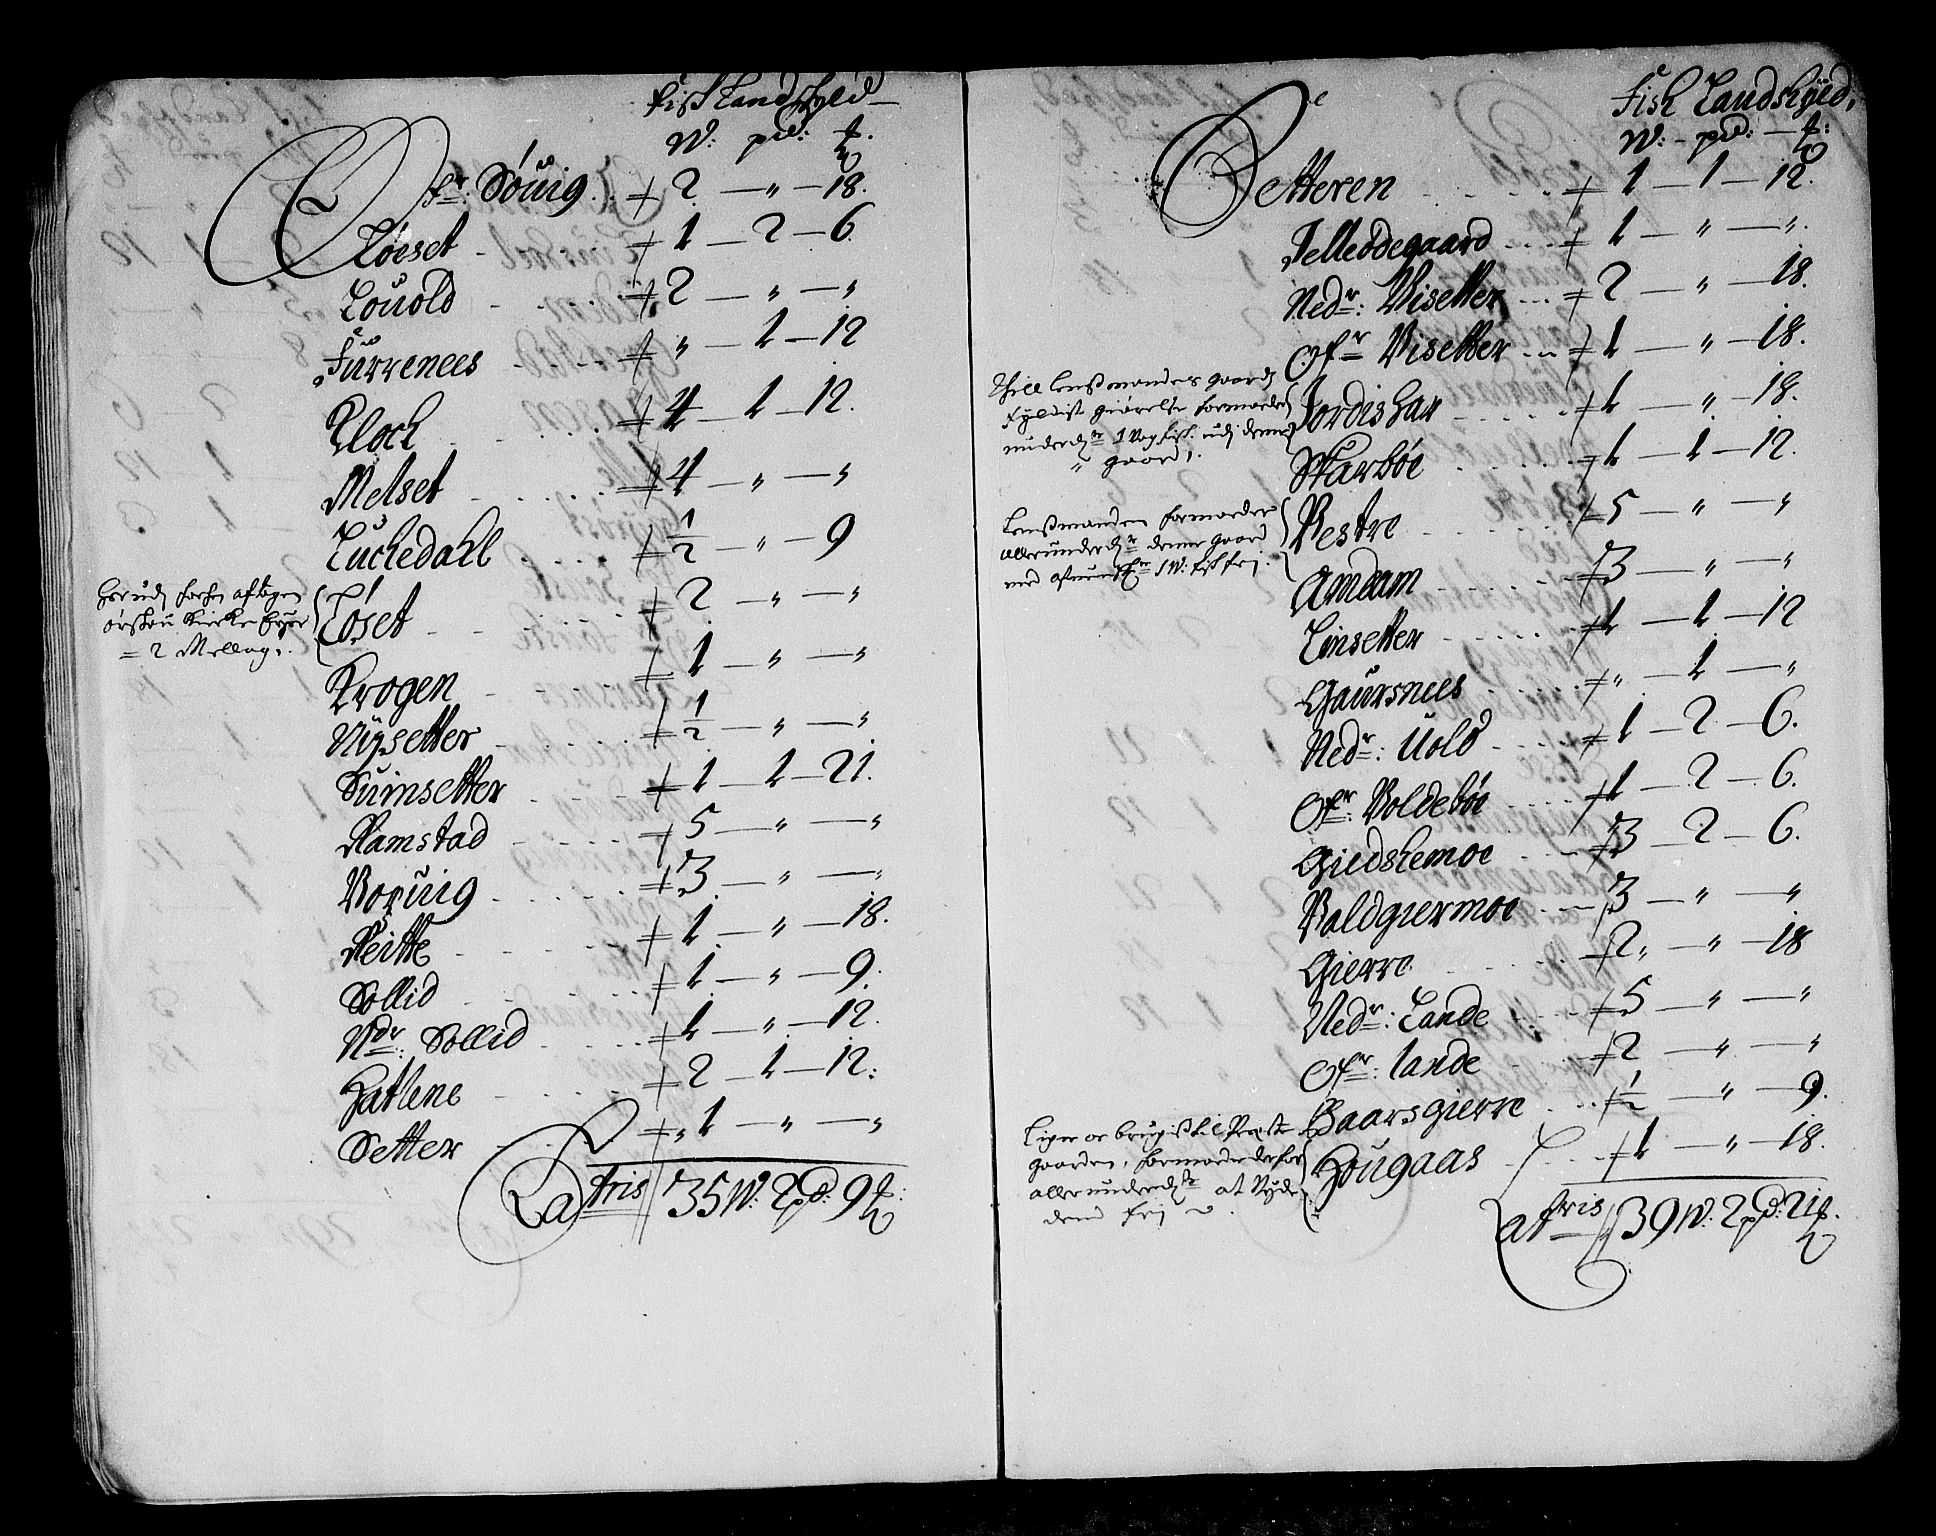 Fisk Landskyld
W: pd: ℔.
Ofr: Sóuig. 2 — " — 18.
Lóeset 1 — 2 — 6.
Louold 2 — " — "
Fürrenees " — 1 — 12
Klock 4 — 1 — 12.
Melset 4 — " — "
Luckedahl ½ — " — 9
Her udj forhen aftagen
ørskou Kircke Eyer
= 2 Mellag.
Lóset 2 — " — "
Krogen 1 — " — "
Nÿsetter ½ — " — "
Suinsetter 1 — 1 — 21.
Ramstad 5 — " — "
Voruig 3 — " — "
Reitte 1 — " — 18.
Sollid 1 — " — 9.
Ndr: Sollid 1 — " — 12.
Hatlene 2 — 1 — 12:
Setter 1 — " — "
Latris 35 W: 2 pd: 9 ℔:
Fisk Landskÿld,
W: — pd: — ℔:
Setteren 1 — 1 — 12.
Jelleddegaard 1 — " — ".
Nedr: Visetter 2 — " — 18.
Ofr Visetter 1 — " — 18.
Thill Lensmandens gaard
fyldist giørelse formoder
underdr 1 Vog fisk udj denne
gaard,
Jordishar 1 — " — 18.
Skarbóe 1 — 1 — 12.
Lensmanden formoder
allerunderdr denne gaard
med 1 W: fisk frj.
Vestre 5 — " — "
Amdam 3 — " — "
Linsetter 1 — 1 — 12
Gaursnees " — 1 — "
Nedr: Uold 1 — 2 — 6.
Ofr: Voldebóe 1 — 2 — 6.
Giedskemoe 3 — 2 — 6.
Valdgiermoe 3 — " — "
Gierre 2 " — 18
Nedr: Lande 5 — " — "
Ofr: lande 2 — " — "
Baarsgierre ½ — " — 9.
Liger oc brugis til Præste
gaarden, formoder derfor
allerunderdr at Nyde
dend frj
Hougaas 1 — " — 18.
Latris 39 W: 2 pd: 21 ℔.